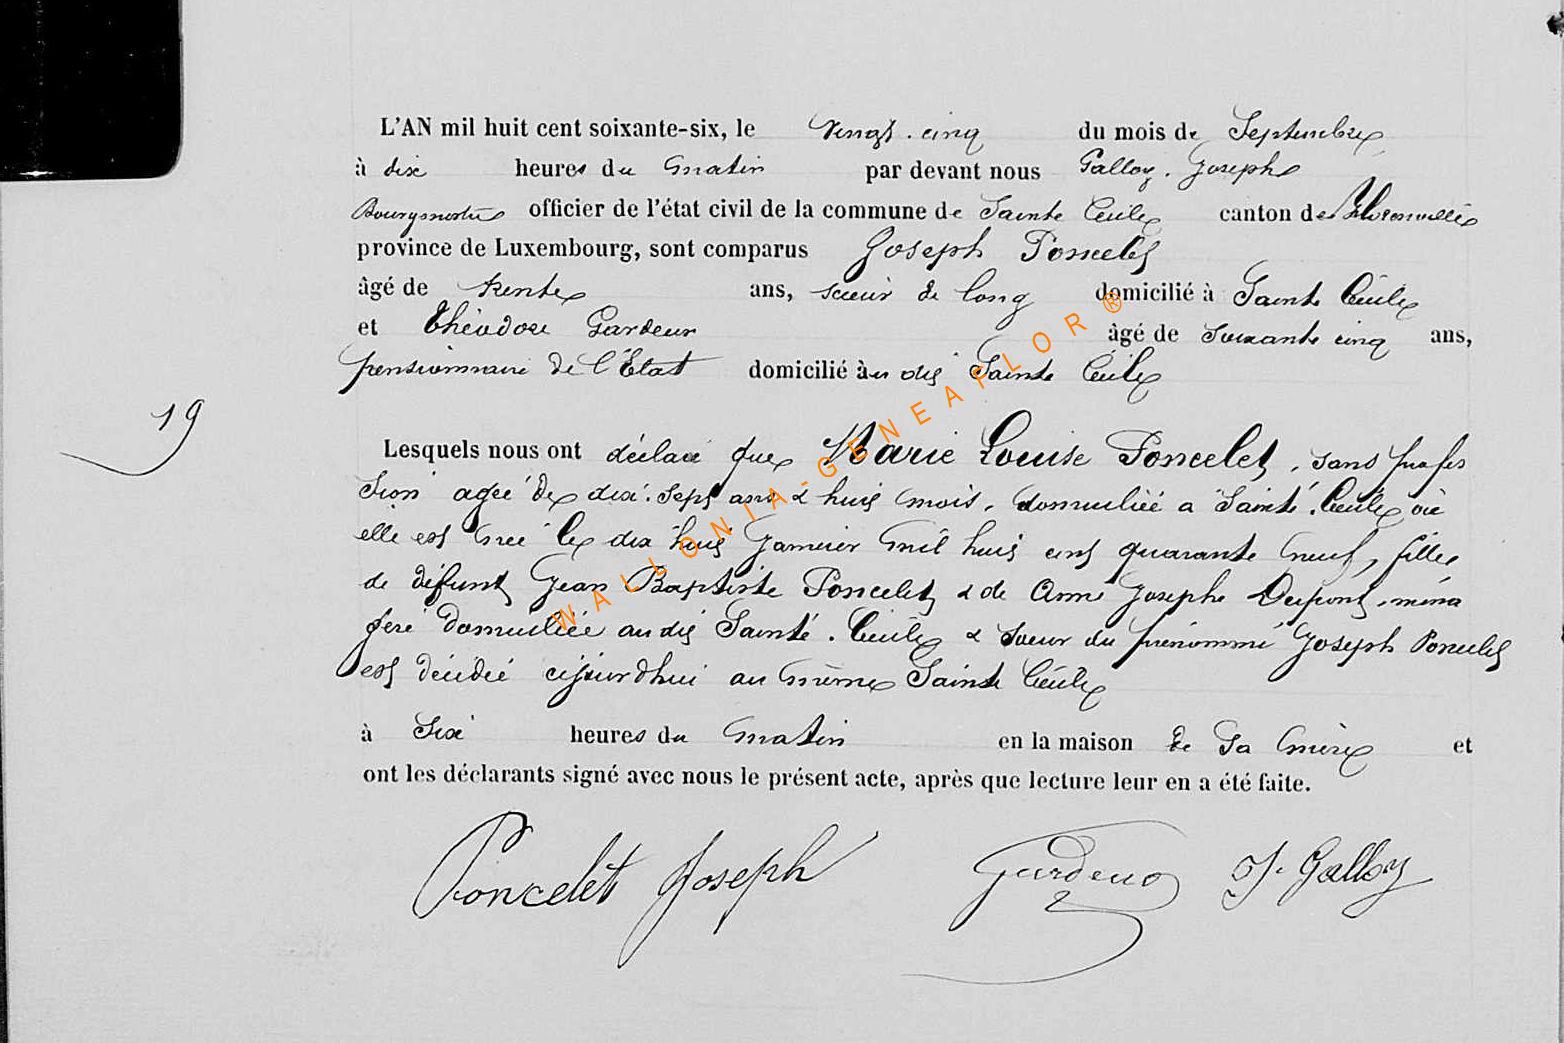 L'AN mil huit cent soixante-six, le vingt-cinq du mois de Septembre
à dix heures du matin par devant nous Galloy Joseph
Bourgmestre officier de l'état civil de la commune de Sainte Cécile canton de Florenville
province de Luxembourg, sont comparus Joseph Poncelet
âgé de trente ans, scieur de long domicilié à Sainte Cécile
et Théodore Gardeur âgé de soixante cinq ans,
pensionnaire de l'Etat domicilié au dit Sainte Cécile
19
Lesquels nous ont déclaré que Marie Louise Poncelet, sans profes
sion agée de dix-sept ans & huit mois, domiciliée a Sainte Cécile où
elle est née le dix huit Janvier mil huit cent quarante neuf, fille
de défunt Jean Baptiste Poncelet & de Anne Josephe Dupont, ména
gère domiciliée au dit Sainte Cécile & soeur du prénommé Joseph Poncelet
est décédée cejourd'hui au même Sainte Cécile
à Six heures du matin en la maison de Sa mère et
ont les déclarants signé avec nous le présent acte, après que lecture leur en a été faite.
Poncelet Joseph Gardeur J. Galloy
WALLONIA-GENEAFLOR®